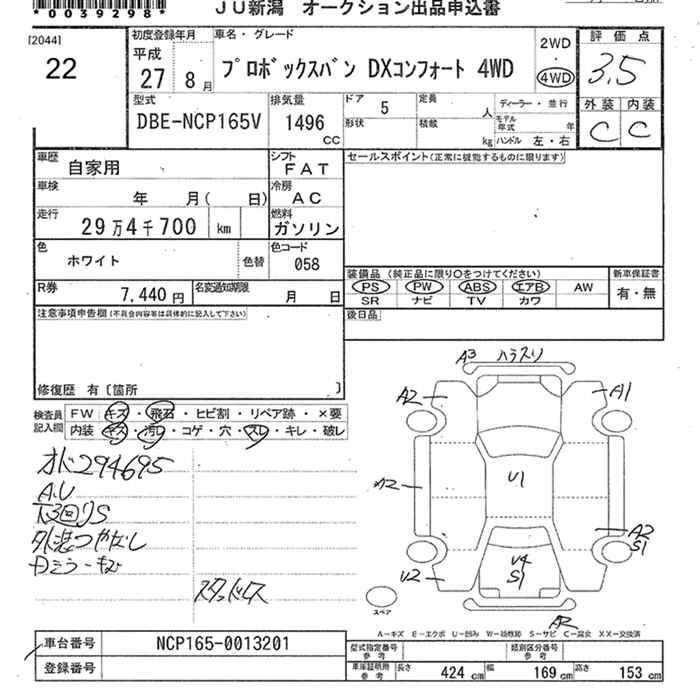 *0039298*
JU新潟 オークション出品申込書
[2044]
22
初度登録年月
平成
27 8月
車名・グレード
プロボックスバン DXコンフォート 4WD
2WD
4WD
評価点
3.5
外装 内装
C C
型式
DBE-NCP165V
排気量
1496
CC
ドア 5
形状
定員 人
積載 kg
ディーラー・並行
モデル年式 年
ハンドル 左・右
車歴 自家用
シフト
FAT
車検
年 月( 日)
冷房
AC
走行
29万4千700 km
燃料
ガソリン
色
ホワイト
色替
色コード
058
R券
7,440円
名変通知期限
月 日
セールスポイント(正常に機能するものに限ります)
装備品(純正品に限り○をつけてください)
PS PW ABS エアB AW
SR ナビ TV カワ
新車保証書
有・無
後日品
注意事項申告欄(不具合内容等は具体的に記入して下さい)
修復歴 有〔箇所 〕
検査員記入欄
FW キズ・飛石・ヒビ割・リペア跡・×要
内装 キズ・汚レ・コゲ・穴・スレ・キレ・破レ
オド294695
A.U
下回りS
外装つやなし
Dミラーキズ
スタッドレス
A3 ハラスリ
A2 A1
A2 U1
A2
S1
U2
U4
S1
A2
スペア
A−キズ E−エクボ U−凹み W−補修跡 S−サビ C−腐食 XX−交換済
車台番号 NCP165-0013201
登録番号
型式指定番号
参考
類別区分番号
参考
車庫証明用
参考
長さ 424 cm 幅 169 cm 高さ 153 cm